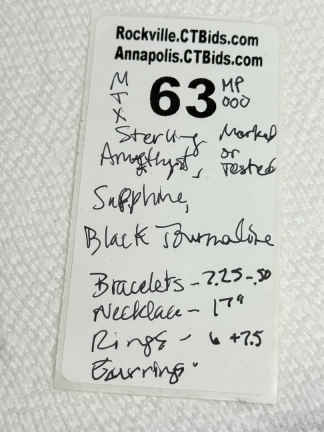 Rockville.CTBids.com
Annapolis.CTBids.com
MTX 63 MP 000
Sterling Marked
Amethyst, or Tested
Sapphire,
Black Tourmaline
Bracelets - 7.25-.50
Necklace - 17"
Rings - 6 + 7.5
Earrings